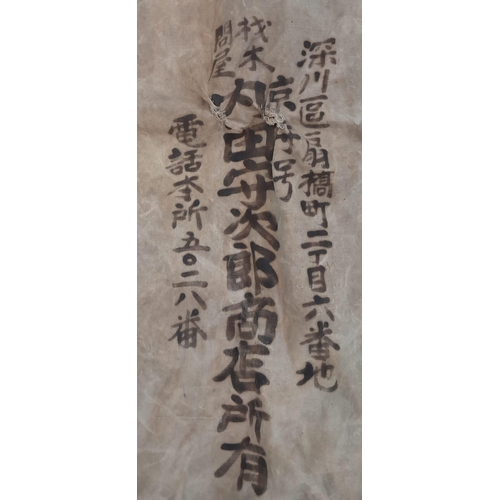 深川區扇橋町二丁目六番地
材木
問屋
内田守次郎商店所有
電話本所五〇二八番